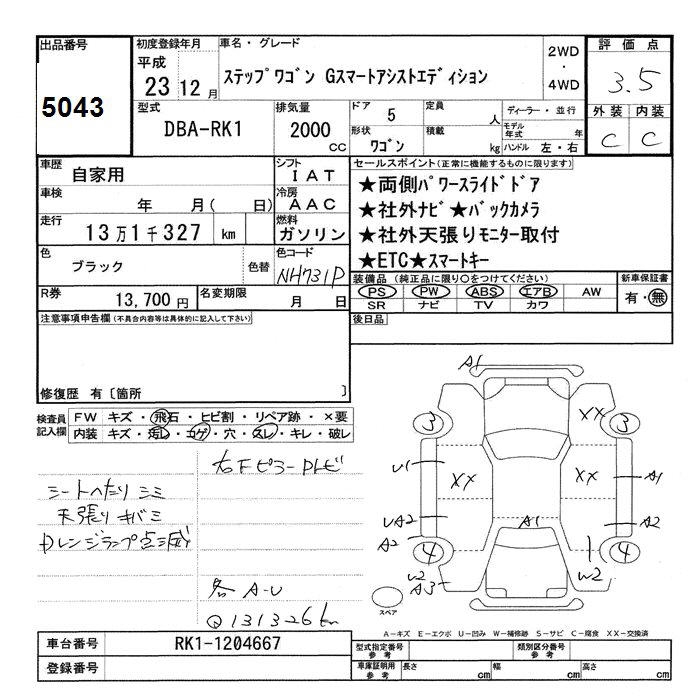 出品番号
5043
初度登録年月
平成
23 12 月
車名・グレード
ステップワゴン Gスマートアシストエディション
2WD
・
4WD
評価点
3.5
型式
DBA-RK1
排気量
2000
cc
ドア
5
定員
人
形状
ワゴン
積載
kg
ディーラー・並行
モデル
年式
年
ハンドル 左・右
外装 内装
C C
車歴
自家用
シフト
IAT
車検
年 月( 日)
冷房
AAC
走行
13万1千327 km
燃料
ガソリン
色
ブラック
色替
色コード
NH731P
R券
13,700円
名変期限
月 日
セールスポイント(正常に機能するものに限ります)
★両側パワースライドドア
★社外ナビ★バックカメラ
★社外天張りモニター取付
★ETC★スマートキー
装備品 (純正品に限り○をつけてください)
PS PW ABS エアB AW
SR ナビ TV カワ
新車保証書
有・無
後日品
注意事項申告欄(不具合内容等は具体的に記入して下さい)
修復歴 有〔箇所 〕
検査員
記入欄
FW キズ・飛石・ヒビ割・リペア跡・×要
内装 キズ・汚レ・コゲ・穴・スレ・キレ・破レ
シートヘたり シミ
天張り キバミ
Dレンジランプ点滅
各A-U
Q 131326km
A1
3
XX
3
U1
XX
XX
A1
UA2
A1
A2
A2
4
4
W2
W2
A3
スペア
A-キズ E-エクボ U-凹み W-補修跡 S-サビ C-腐食 XX-交換済
車台番号
RK1-1204667
登録番号
型式指定番号
参考
類別区分番号
参考
車庫証明用
参考
長さ
cm
幅
cm
高さ
cm